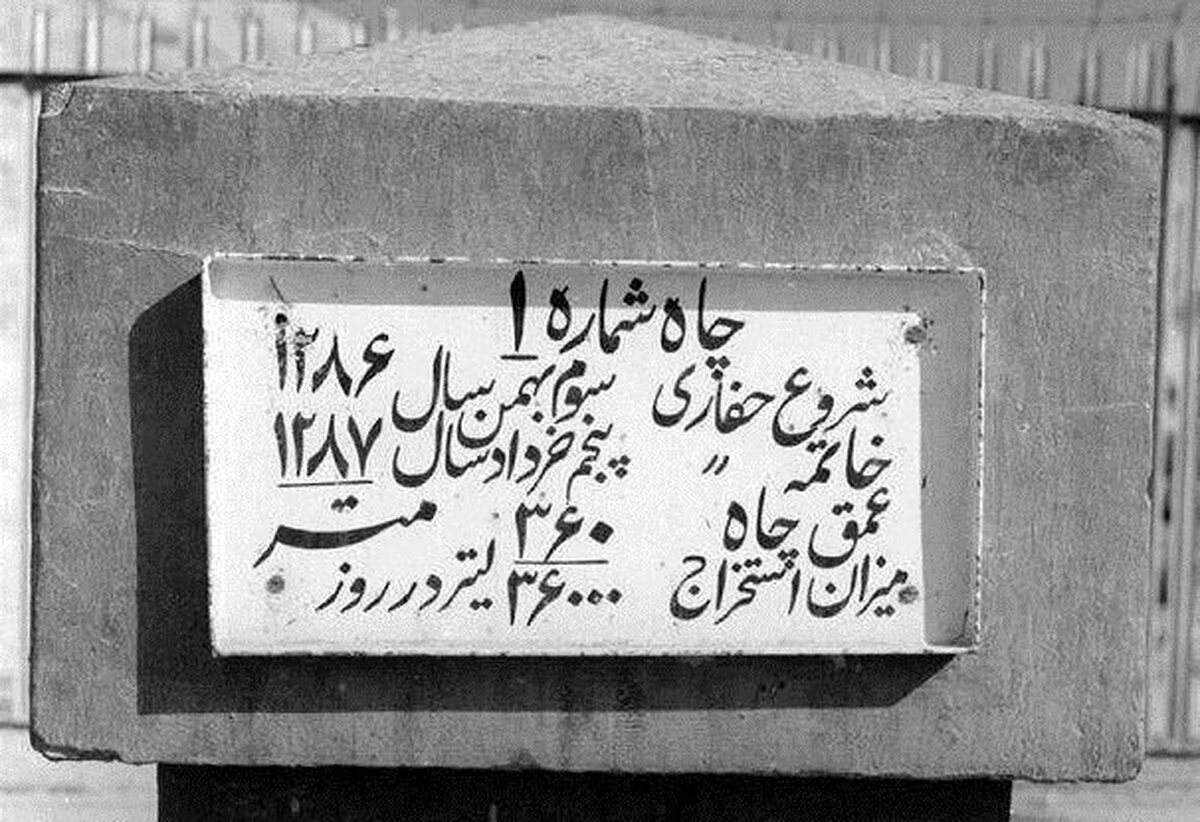 چاه شماره ۱
شروع حفاری سوم بهمن سال ۱۲۸۶
خاتمه " پنجم خرداد سال ۱۲۸۷
عمق چاه ۳۶۰ متر
میزان استخراج ۳۶۰۰۰ لیتر در روز